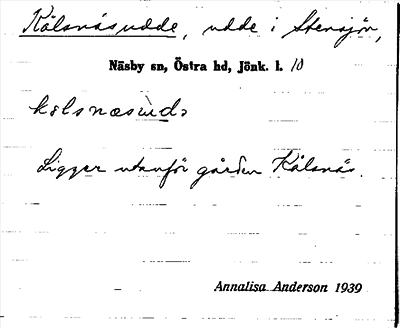 Kålsnäsudde, udde i Stensjön,
Näsby sn, Östra hd, Jönk. l. 10
kɛlsnæsùdə
Ligger utanför gården Kålsnäs.
Annalisa Anderson 1939